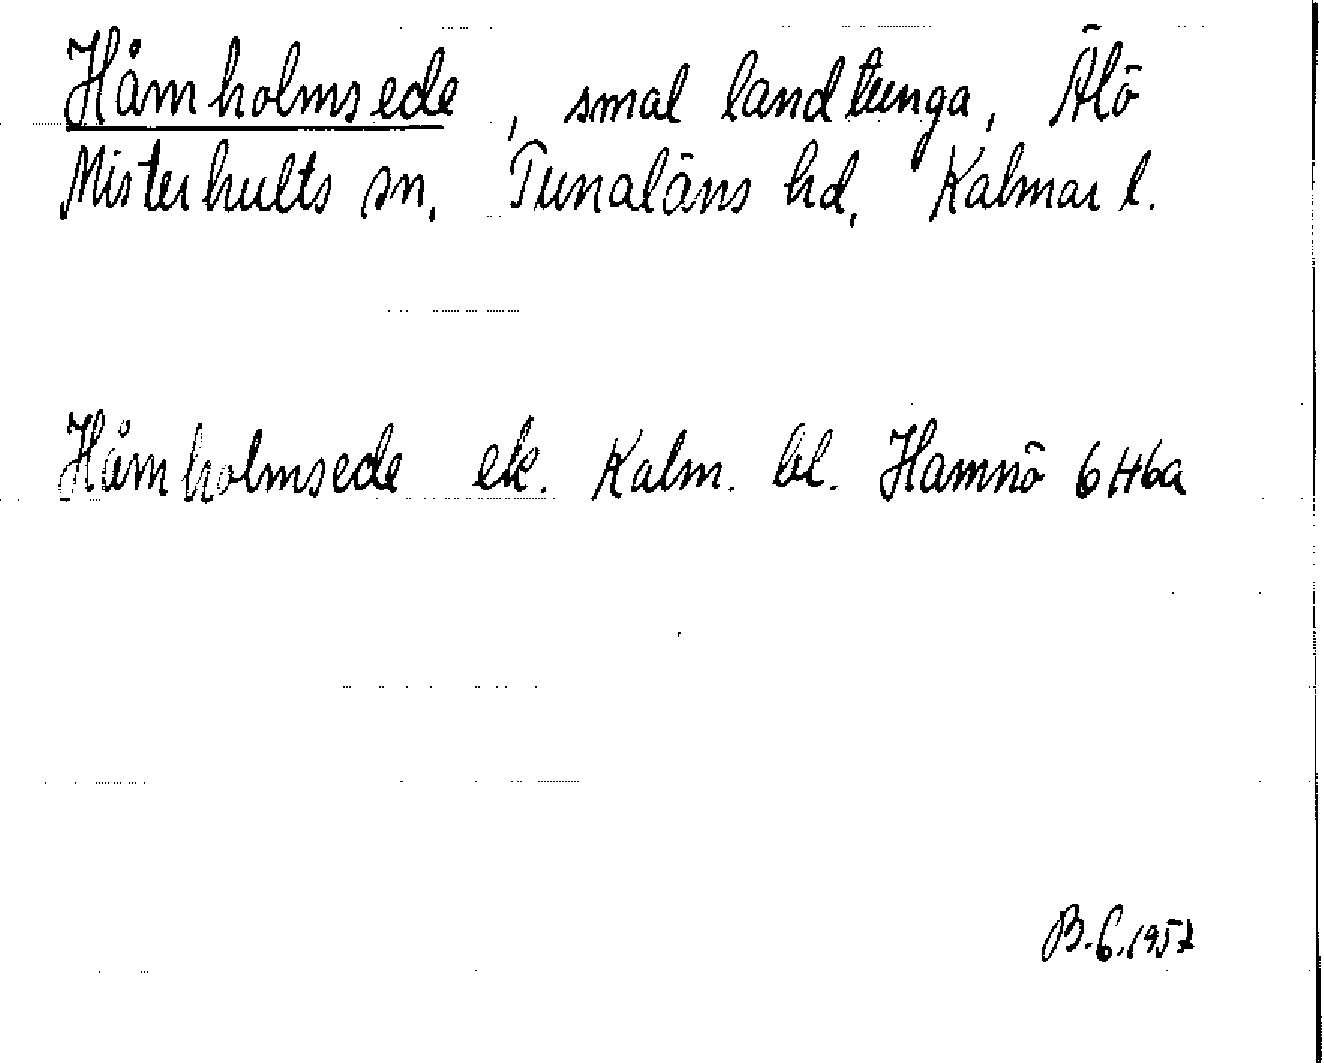 Håmholmsede, smal landtunga, Älö
Misterhults sn, Tunaläns hd, Kalmar l.
Håmholmsede ek. Kalm. bl. Hamnö 6H6a
B.G.1957